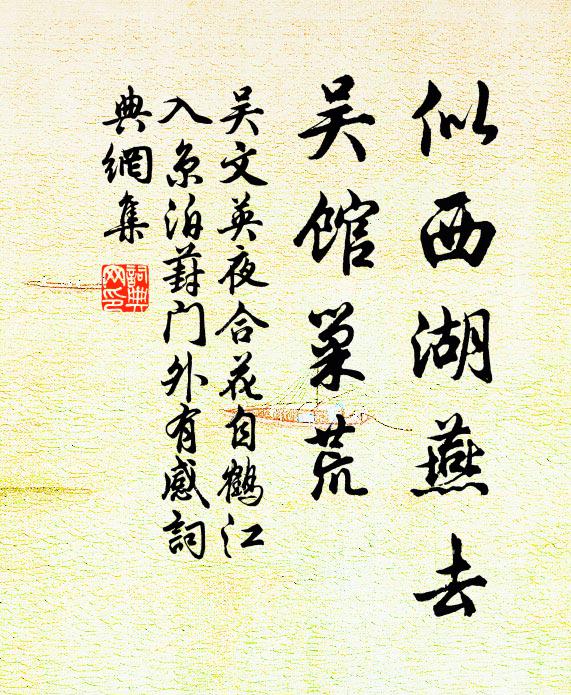 似西湖燕去
吴馆巢荒
吴文英夜合花自鹤江
入京泊葑门外有感词
典網集
詞典网印